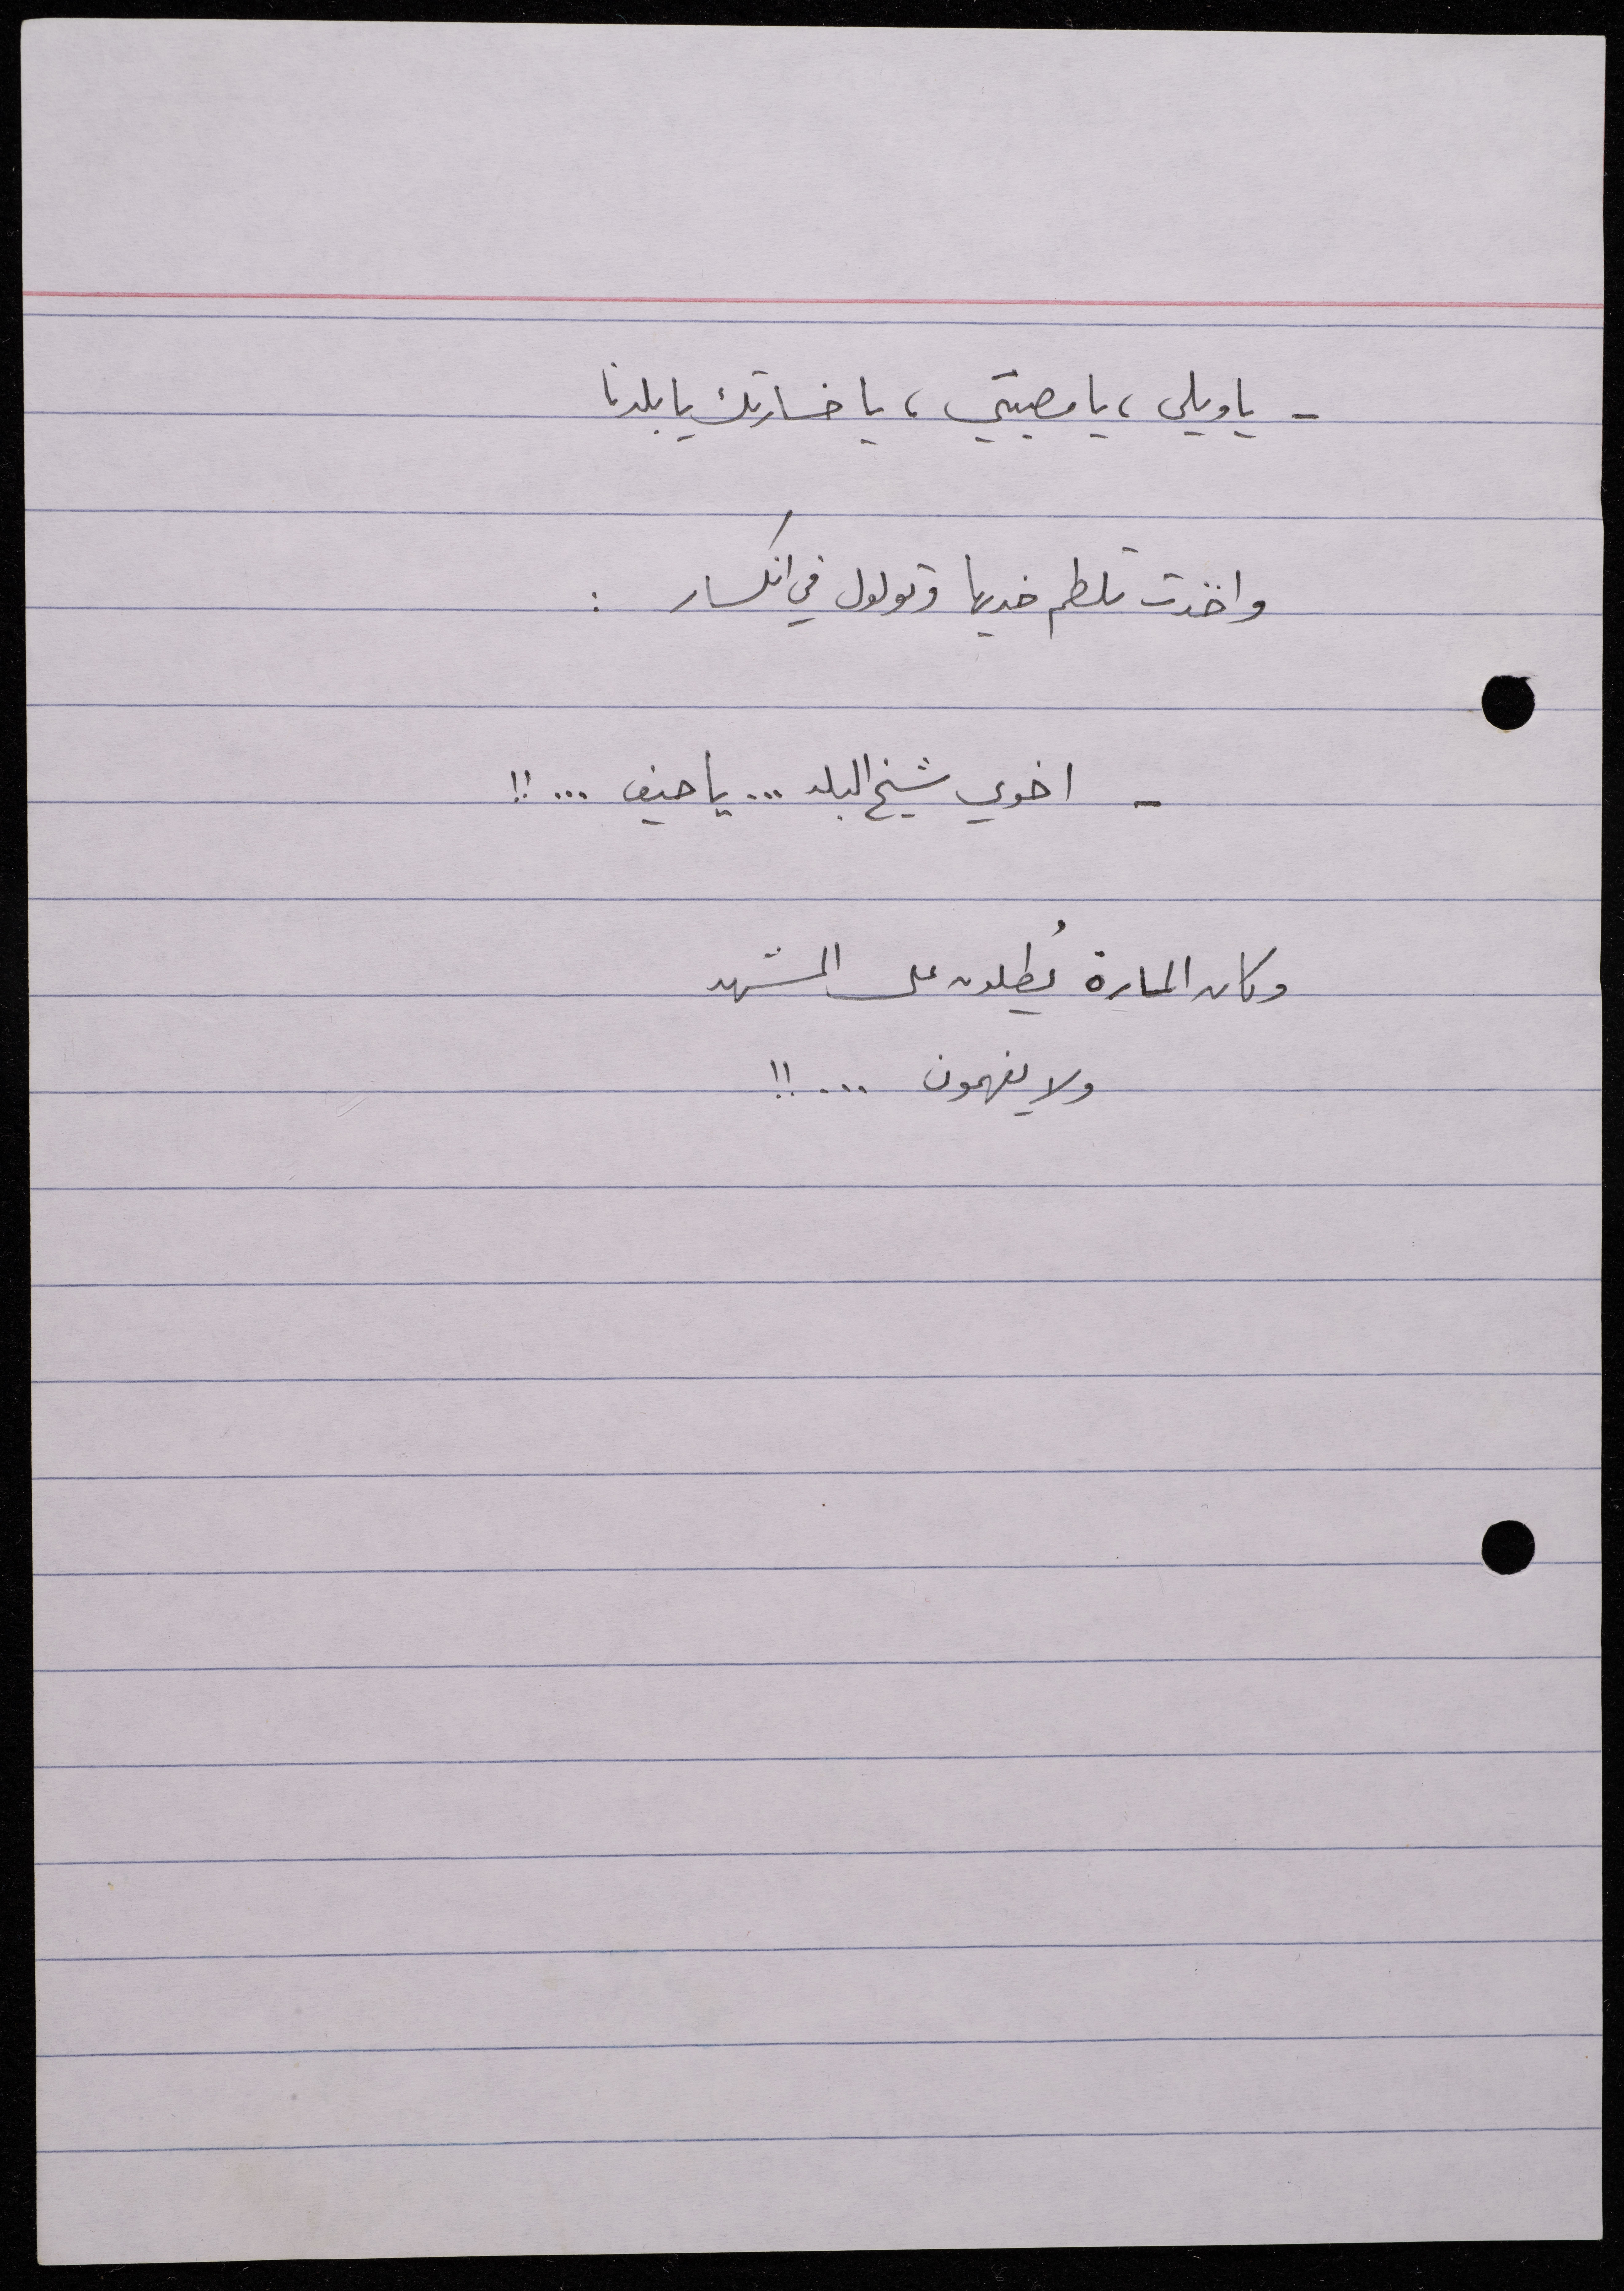 - يا ويلي، يا مصيبتي، يا خسارتك يا بلدنا
واخذت تلطم خديها وتولول في انكسار :
- اخوي شيخ البلد ... يا حيف ... !!
وكان المارة يُطلون على المشهد
ولا يفهمون ... !!